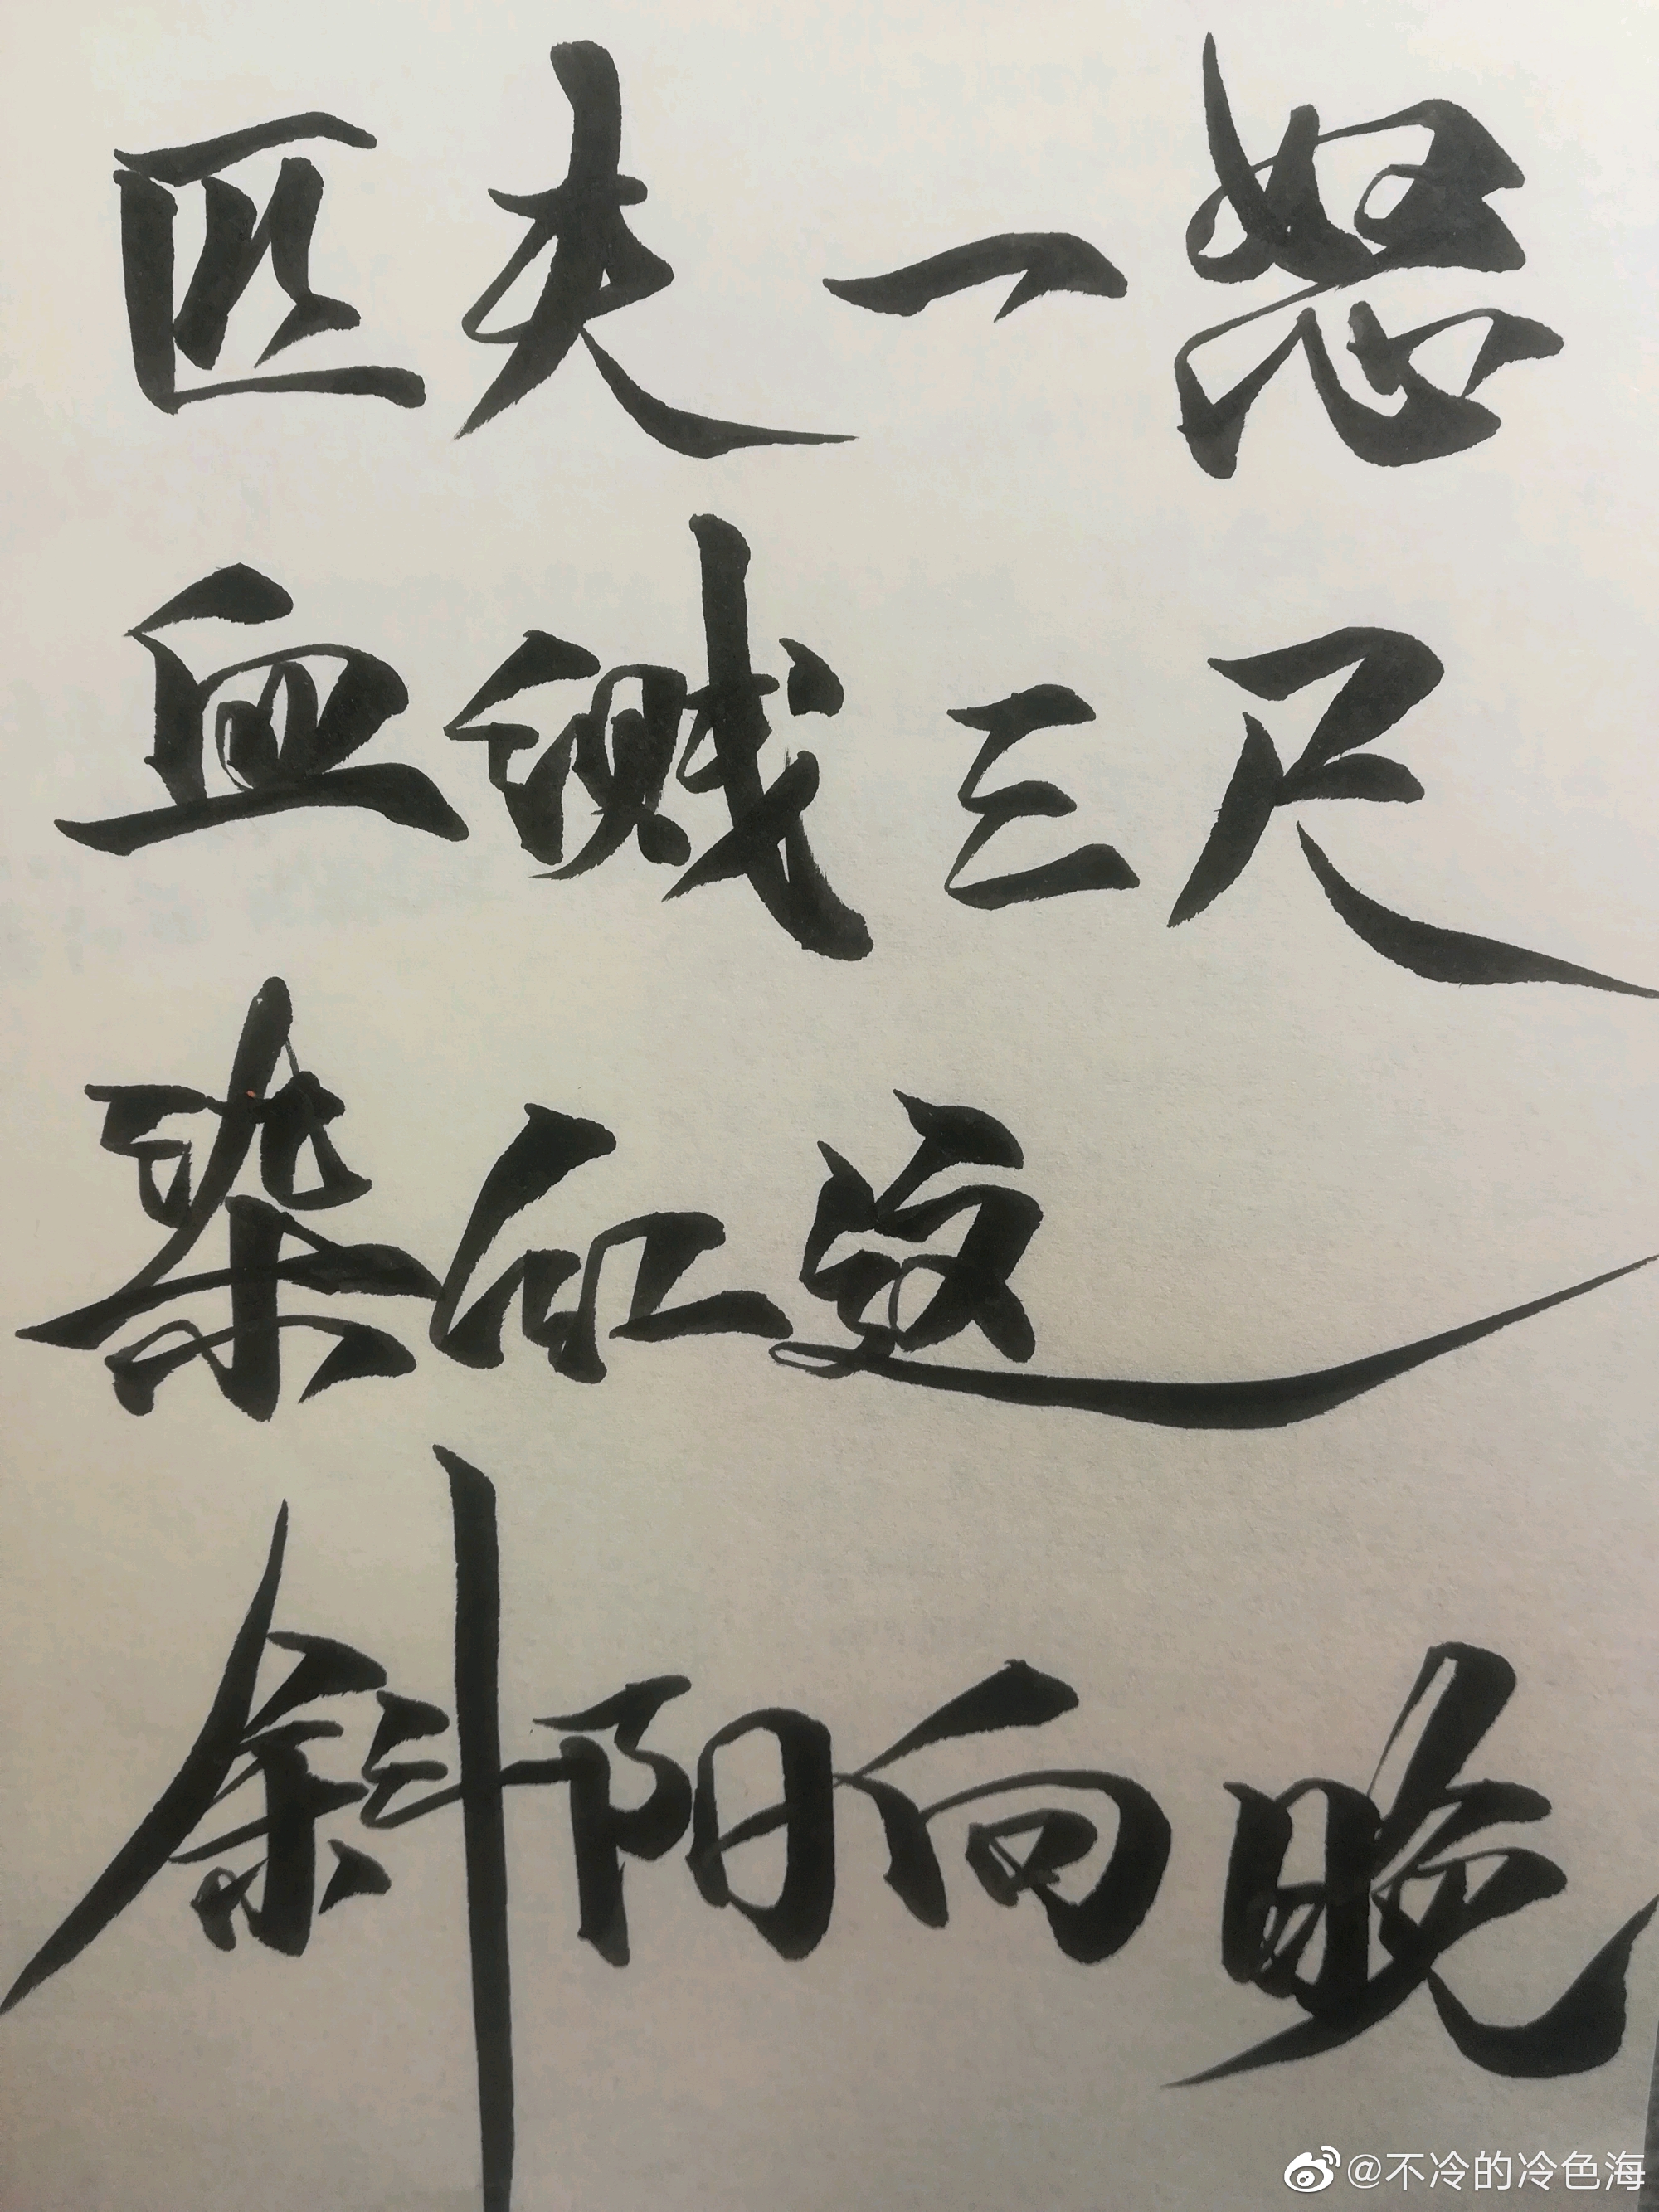 匹夫一怒
血溅三尺
染红这
斜阳向晚
@不冷的冷色海